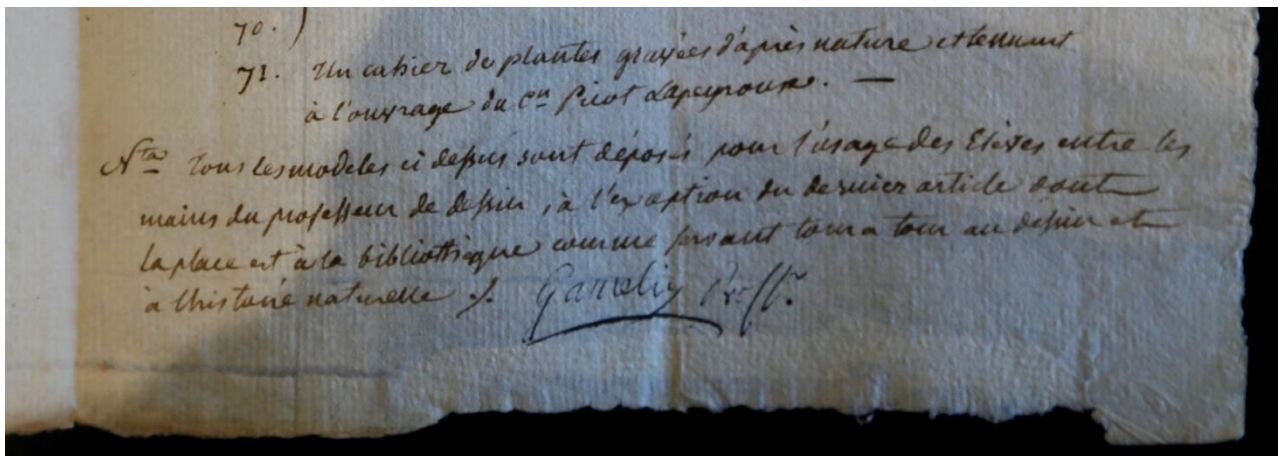 70. )
71. Un cahier de plantes gravées d'après nature et tenant
à l'ouvrage du Cen Picot Lapeyrouse. —
Nta Tous les modeles ci dessus sont déposés pour l'usage des Elèves entre les
mains du professeur de dessin, à l'exception du dernier article dont
la place est à la bibliothèque comme servant tour a tour au dessin et
à l'histoire naturelle ./.
Gamelin Profr.